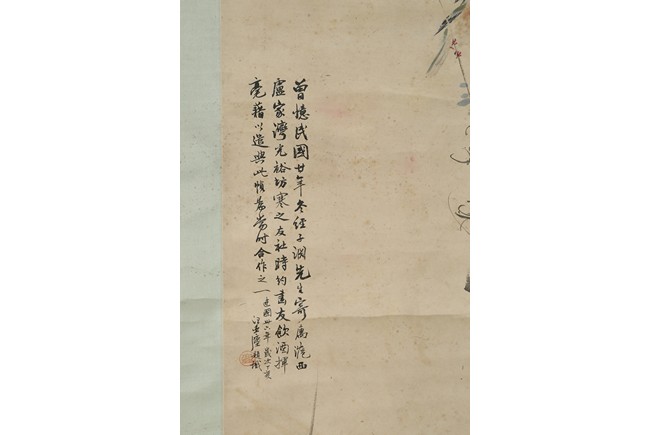 曾憶民國廿年冬經子淵先生寄寓滬西
盧家灣光裕坊寒之友社時約畫友飲酒揮
毫藉以遣興此幀為當時合作之一
建國卅六年歲次丁亥